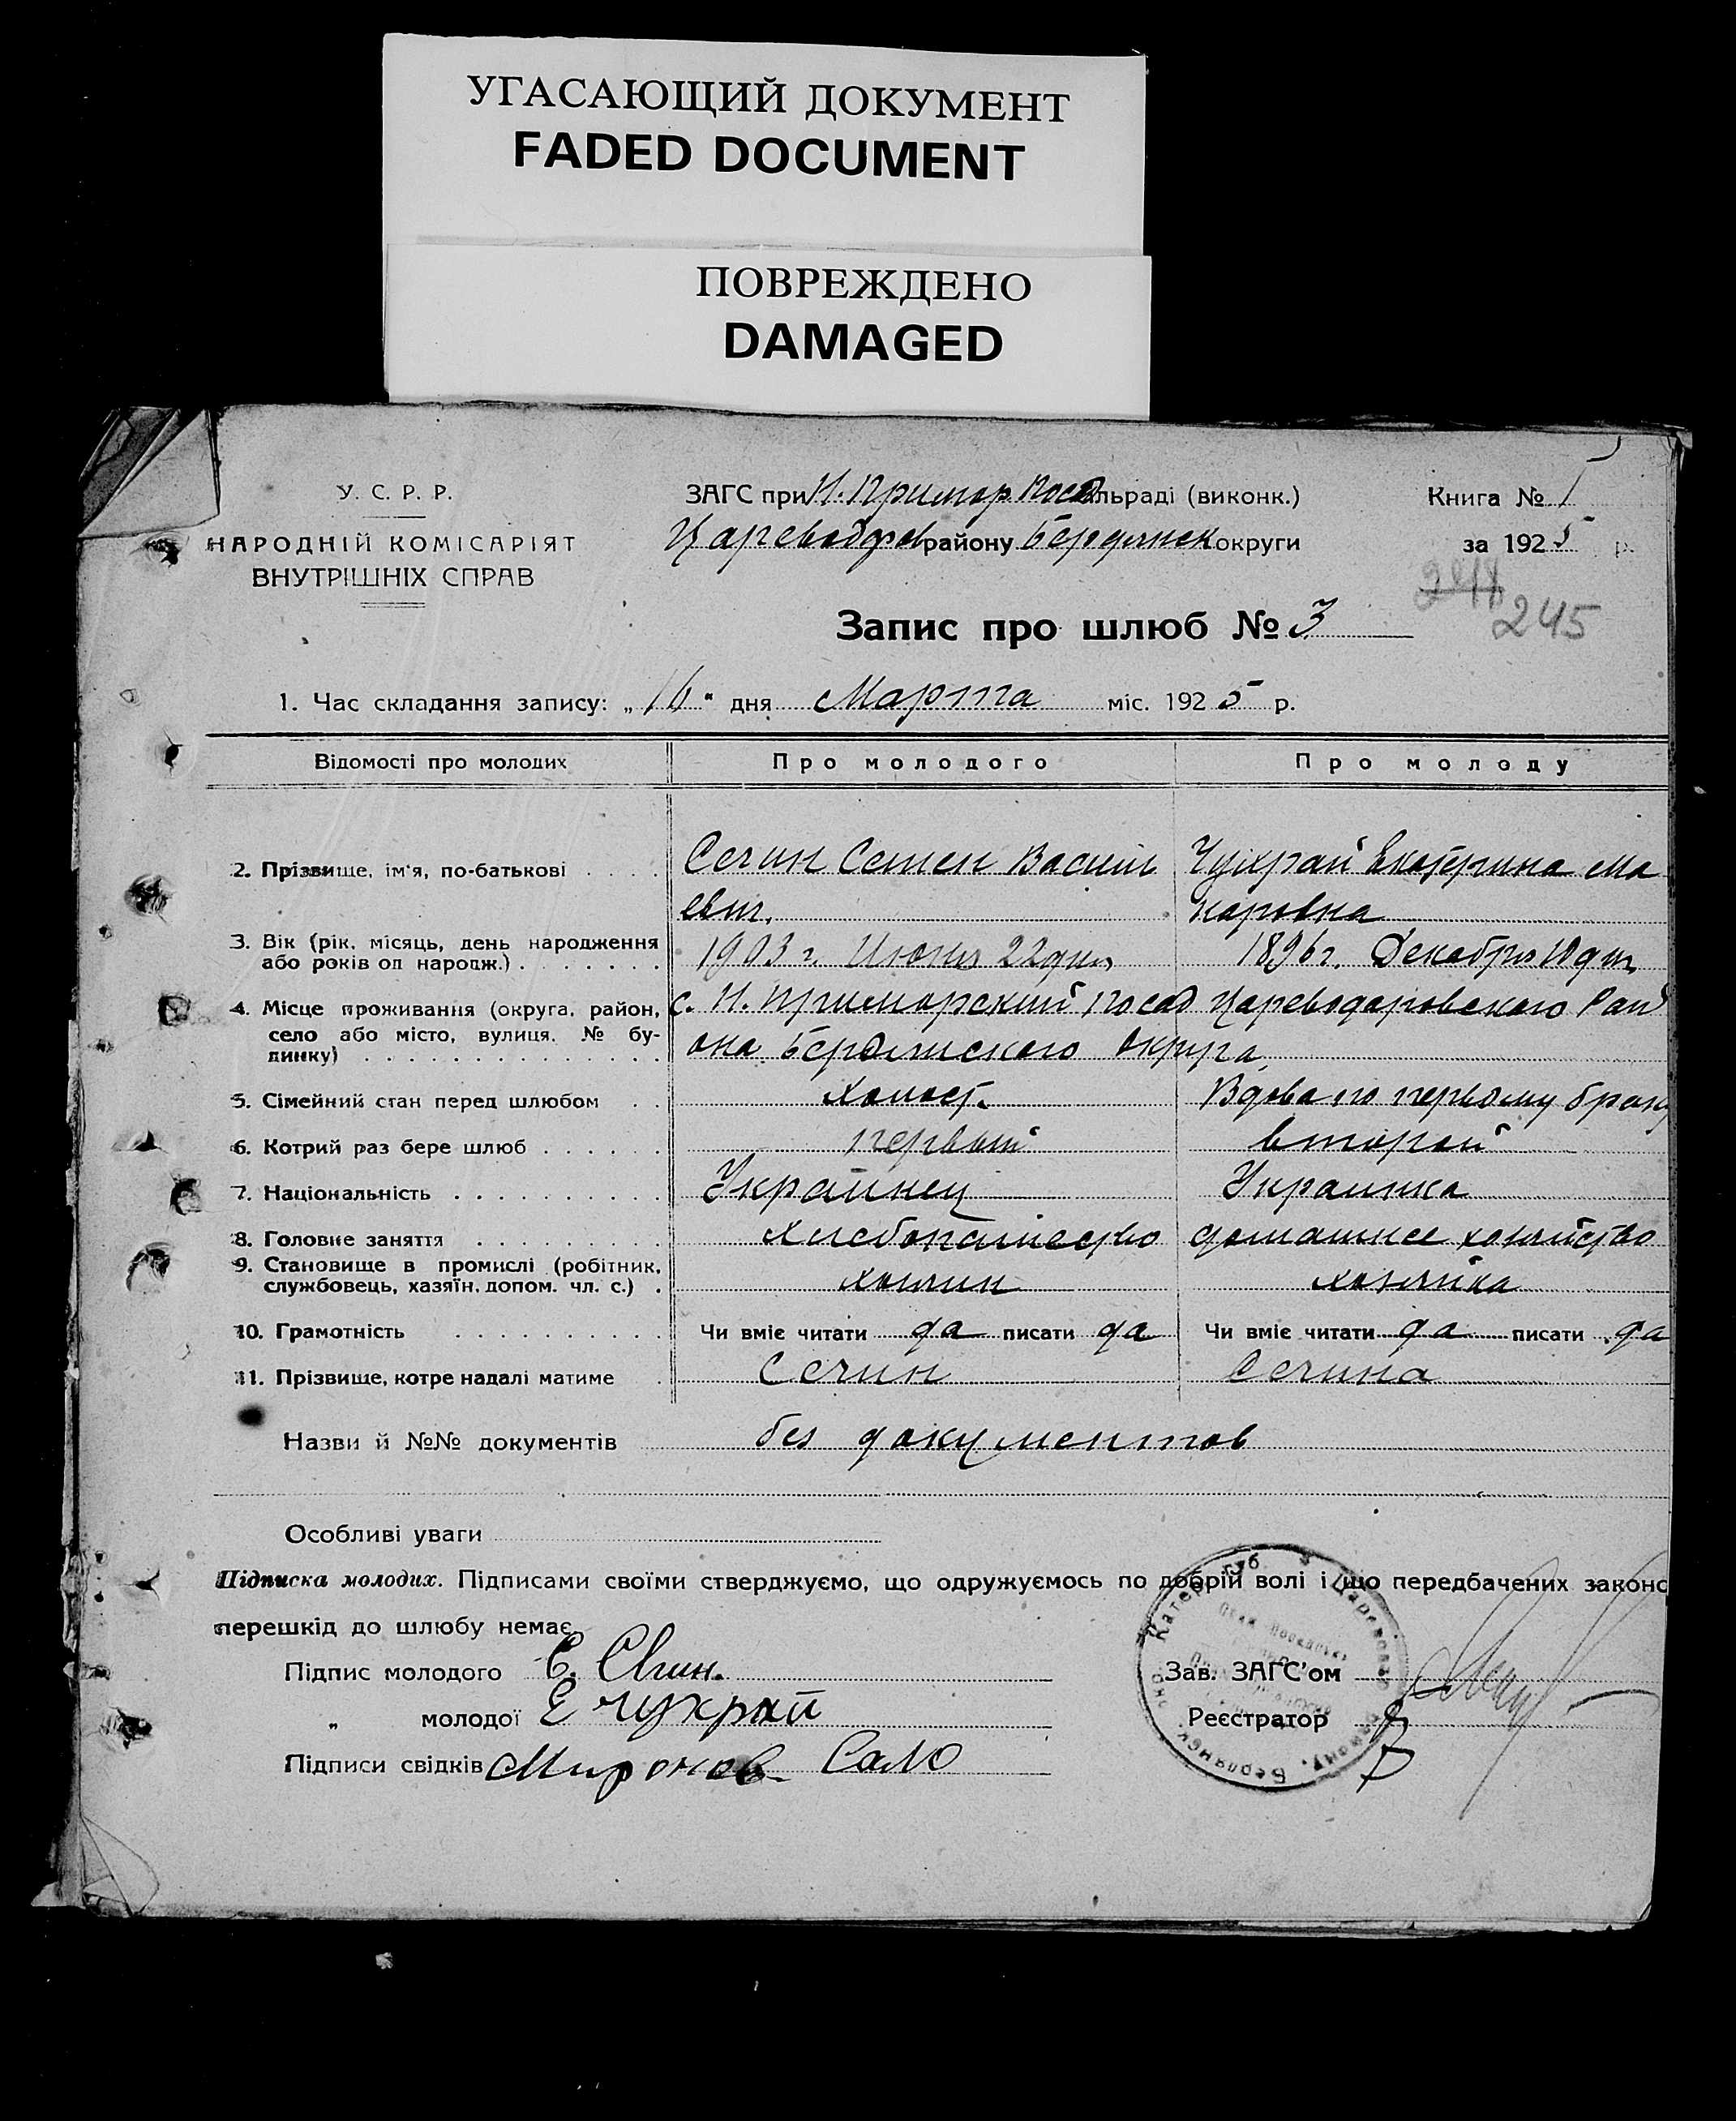 УГАСАЮЩИЙ ДОКУМЕНТ
FADED DOCUMENT
ПОВРЕЖДЕНО
DAMAGED
У. С. Р. Р.
НАРОДНІЙ КОМІСАРІЯТ
ВНУТРІШНІХ СПРАВ
ЗАГС при Н. Примор Посад льраді (виконк.)
Цареводаров району Бердянск округи
Книга № 1
за 1925 р.
245
Запис про шлюб № 3
1. Час складання запису: „16" дня Марта міс. 1925 р.
Відомості про молодих Про молодого Про молоду
2. Прізвище, ім'я, по-батькові . . . . Сечин Семен Васили Чухрай Екатерина Ма
евич. каровна
3. Вік (рік, місяць, день народження
або років од народж.) . . . . . . . 1903 г. Июня 22 дня 1896 г. Декабря 10 дня
4. Місце проживання (округа, район, с. Н. Приморский посад Цареводаровского Рай
село або місто, вулиця, № бу-
динку) . . . . . . . . . . . . . она Бердянского Округа
5. Сімейний стан перед шлюбом . . Холост. Вдова по первому браку
6. Котрий раз бере шлюб . . . . . . первый второй
7. Національність . . . . . . . . . . Украинец Украинка
8. Головне заняття . . . . . . . . . Хлебопашество домашнее хозяйство
9. Становище в промислі (робітник,
службовець, хазяїн, допом. чл. с.) . хозяин хозяйка
10. Грамотність . . . . . . . . . . Чи вміє читати да писати да Чи вміє читати да писати да
11. Прізвище, котре надалі матиме . Сечин Сечина
Назви й №№ документів без документов
Особливі уваги
Підписка молодих. Підписами своїми стверджуємо, що одружуємось по добрій волі і що передбачених законо
перешкід до шлюбу немає.
Підпис молодого С. Сечин. Зав. ЗАГС'ом
„ молодої Е Чухрай Реєстратор
Підписи свідків Миронов Сало
Катер. губ. Царевод району, Бердянск. окр.